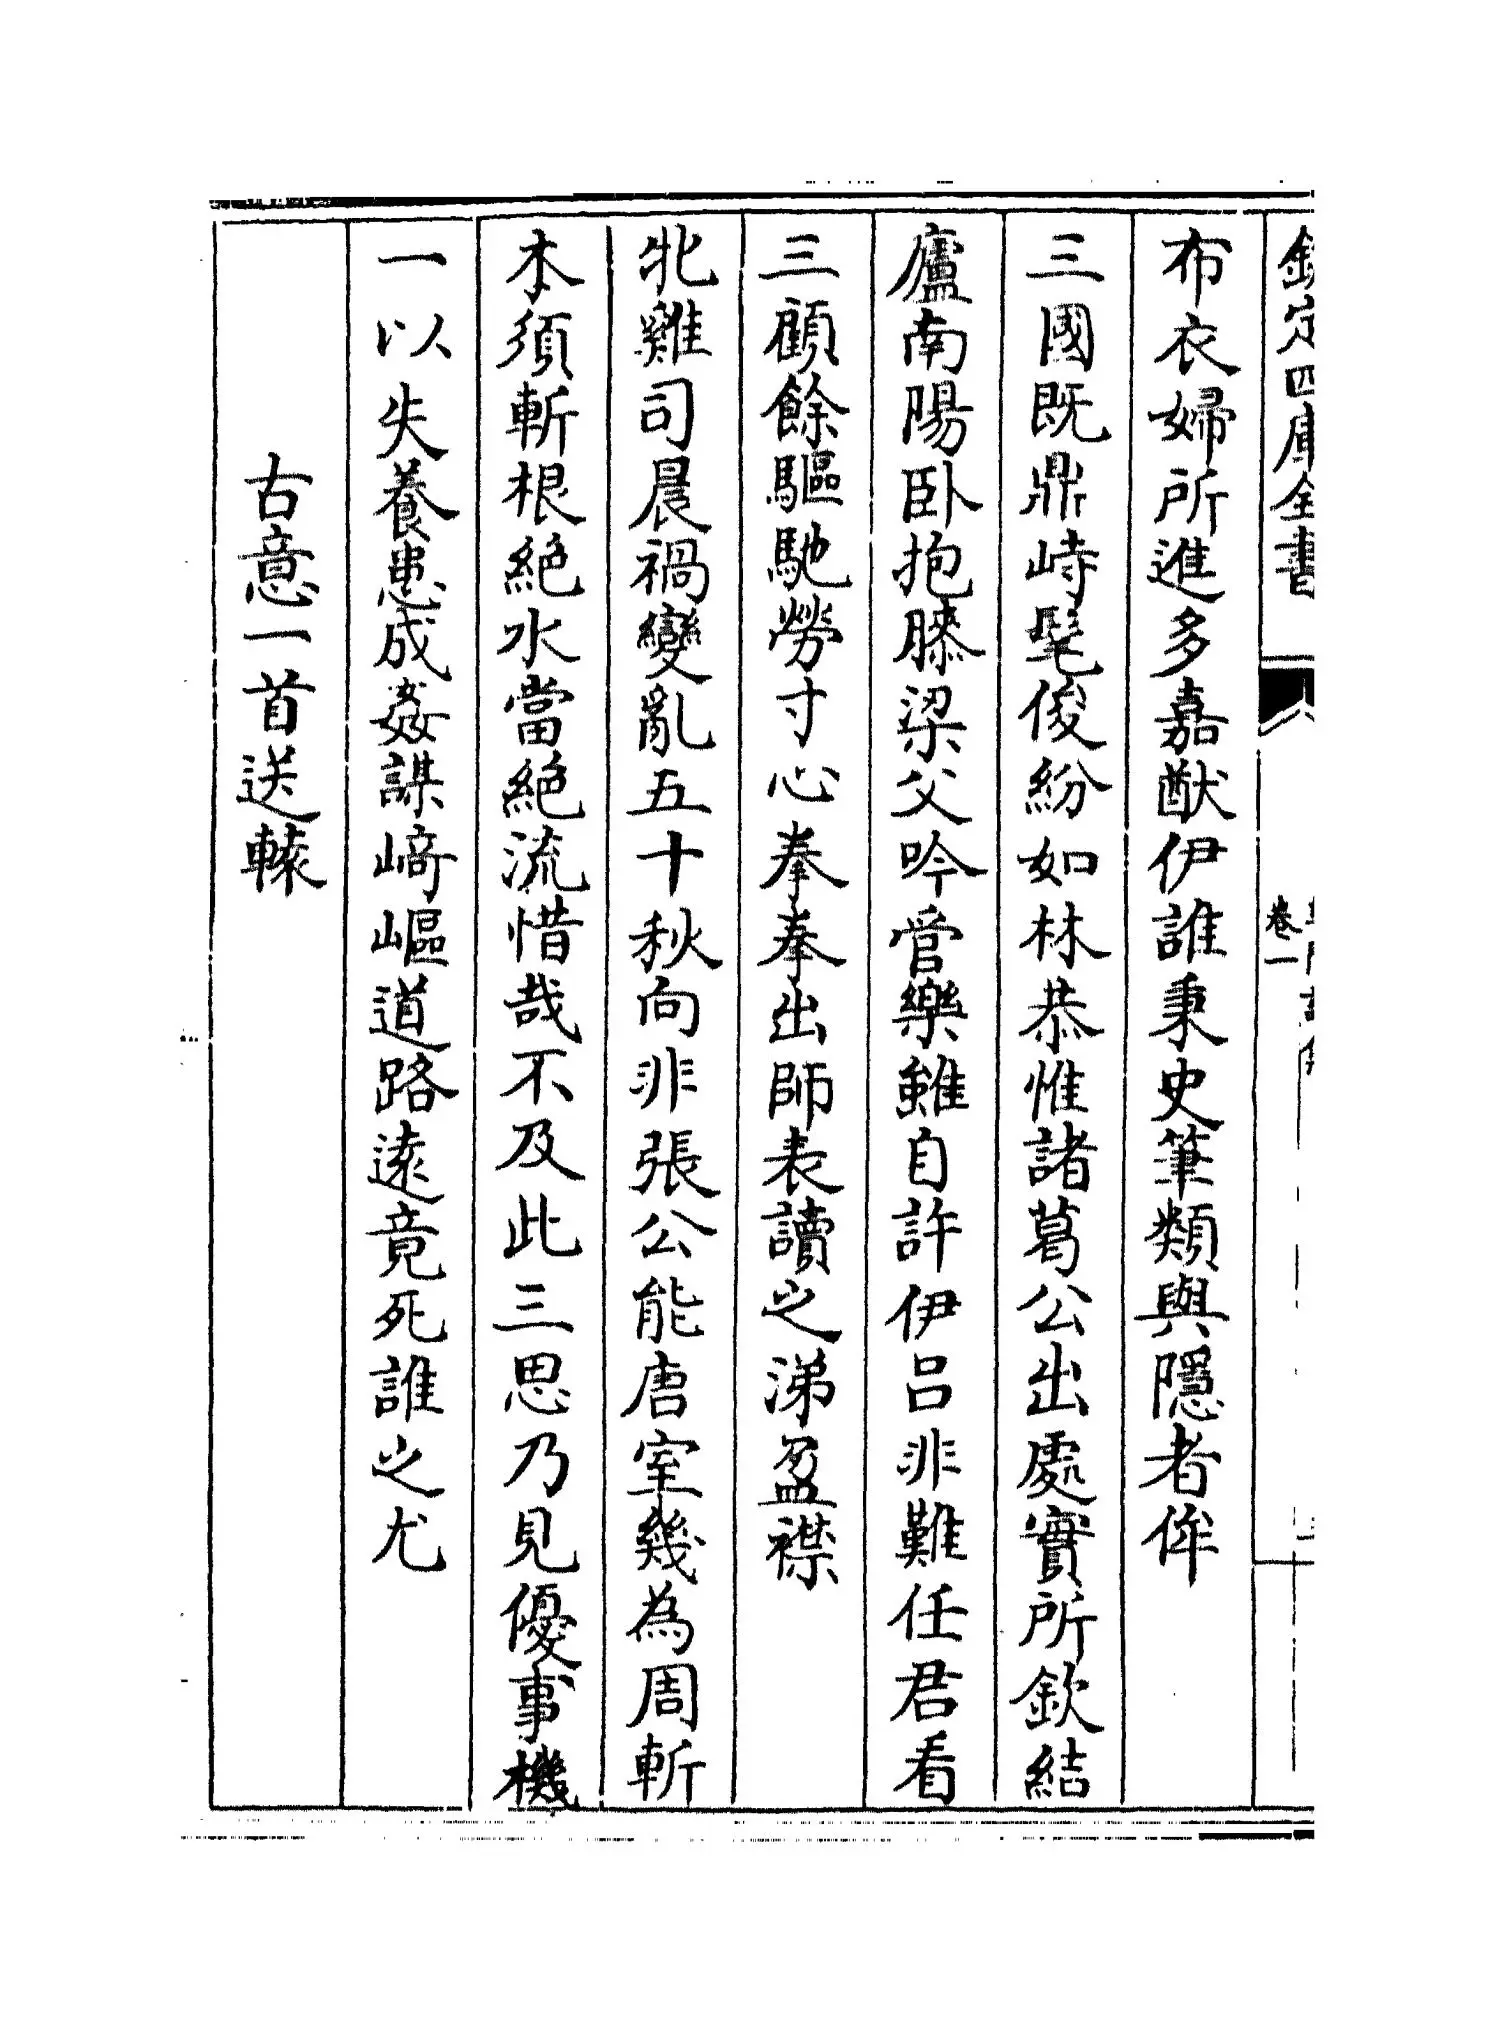 欽定四庫全書
卷一
布衣婦所進多嘉猷伊誰秉史筆類與隱者侔
三國既鼎峙髦俊紛如林恭惟諸葛公出處實所欽結
廬南陽卧抱膝梁父吟管樂雖自許伊吕非難任君看
三顧餘驅馳勞寸心拳拳出師表讀之涕盈襟
牝雞司晨禍變亂五十秋向非張公能唐室幾為周斬
木須斬根絶水當絶流惜哉不及此三思乃見優事機
一以失養患成姦謀﨑嶇道路逺竟死誰之尤
古意一首送轅